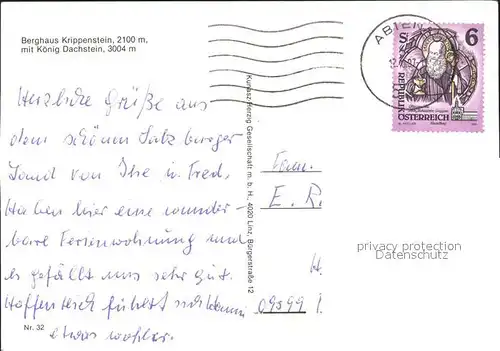 Berghaus Krippenstein, 2100 m,
mit König Dachstein, 3004 m
Herzliche Grüße aus
dem schönen Salzburger
Land von Ilse u. Fred,
Haben hier eine wunder-
bare Ferienwohnung und
es gefällt uns sehr gut.
Hoffentlich fühlst
etwas wohler.
Nr. 32
Kunasz Herzig Gesellschaft m. b. H., 4020 Linz, Bürgerstraße 12
ABTEN
S 6
REPUBLIK
ÖSTERREICH
Fam.
E. R.
H.
09599 f.
privacy protection
Datenschutz